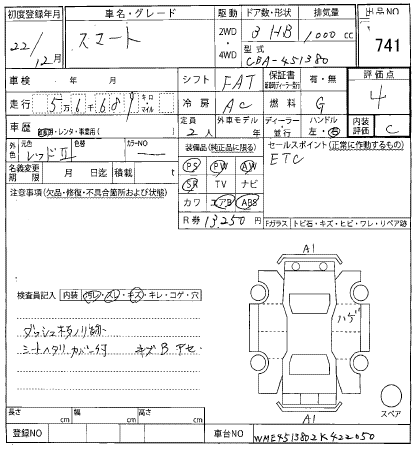 初度登録年月 車名・グレード 駆動 ドア数・形状 排気量 出品NO
22/12月 スマート 2WD・4WD 3 HB 1,000 cc 741
型式 CBA-451380
車検 年 月 シフト FAT 保証書 有・無 評価点 4
走行 5万6千689 キロ マイル 冷房 AC 燃料 G
車歴 レンタ・事業用( ) 定員 2人 外車モデル 年 ディーラー・並行 ハンドル 左・右 内装評価 C
外色 元色 レッドII 色替 カラーNO ―
装備品(純正品に限る) セールスポイント(正常に作動するもの)
PS PW AW ETC
名義変更期限 月 日迄 積載 t SR TV ナビ
注意事項(欠品・修復・不具合箇所および状態) カワ エアB ABS
R券 13,250 円 Fガラス トビ石・キズ・ヒビ・ワレ・リペア跡
A1
検査員記入 内装 汚レ・スレ・キズ・キレ・コゲ・穴
ハゲ
シートヘタリ カバー付 キズB アセ
スペア
A1
長さ cm 幅 cm 高さ cm
登録NO 車台NO WME4513802K422050